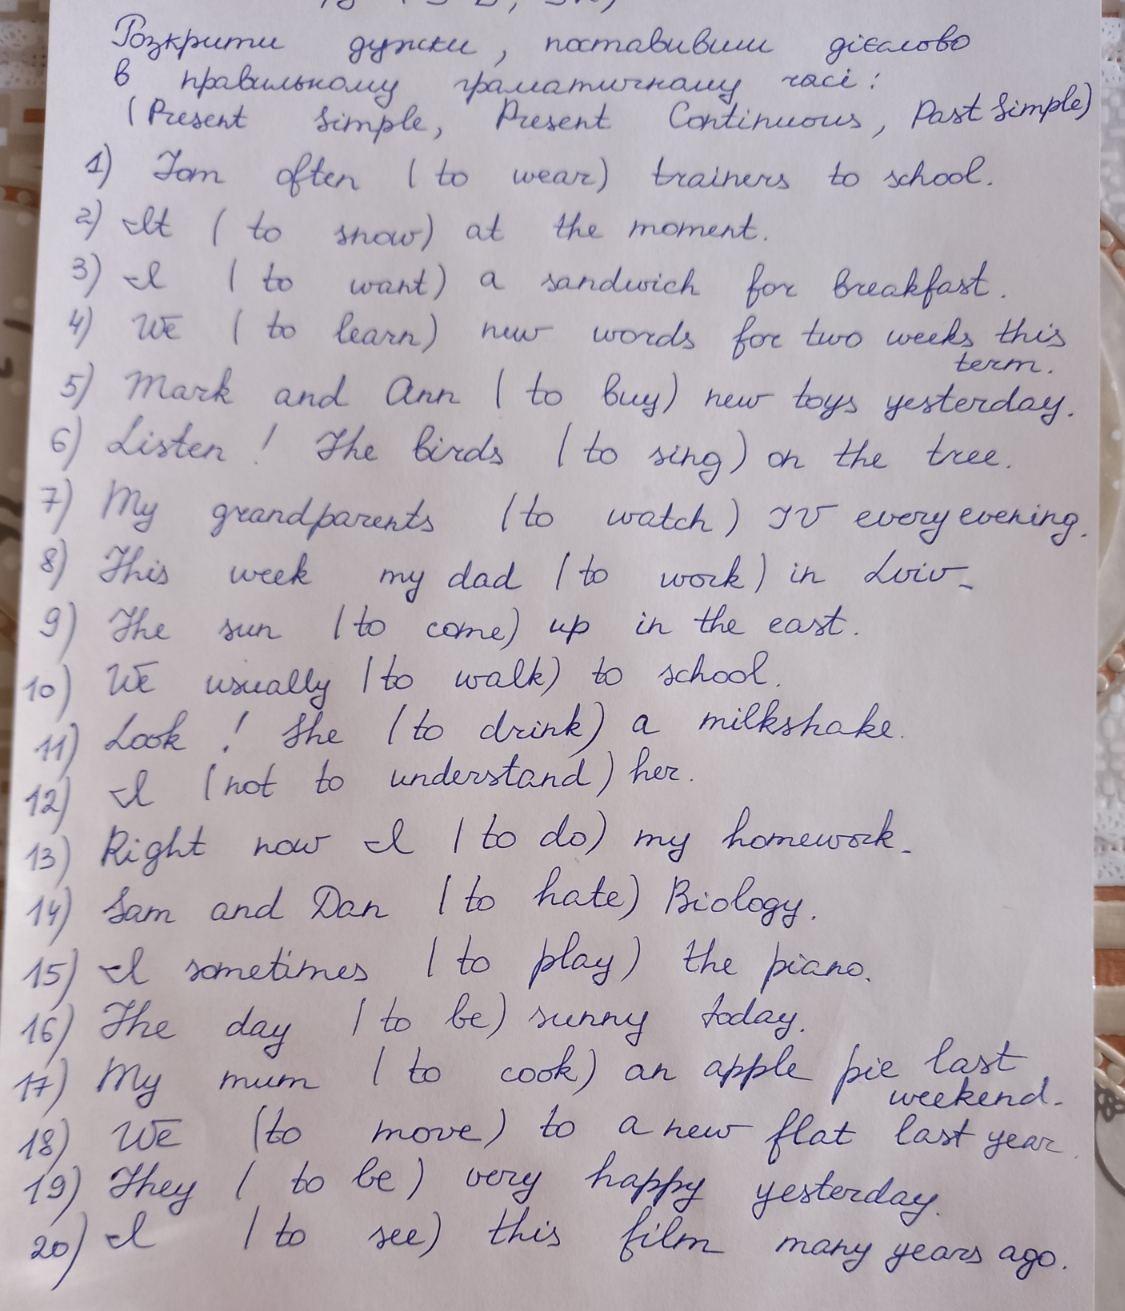 Розкрити дужки, поставивши дієслово
в правильному граматичному часі:
(Present Simple, Present Continuous, Past Simple)
1) Tom often (to wear) trainers to school.
2) It (to snow) at the moment.
3) I (to want) a sandwich for breakfast.
4) We (to learn) new words for two weeks this
term.
5) Mark and Ann (to buy) new toys yesterday.
6) Listen! The birds (to sing) on the tree.
7) My grandparents (to watch) TV every evening.
8) This week my dad (to work) in Lviv.
9) The sun (to come) up in the east.
10) We usually (to walk) to school.
11) Look! She (to drink) a milkshake.
12) I (not to understand) her.
13) Right now I (to do) my homework.
14) Sam and Dan (to hate) Biology.
15) I sometimes (to play) the piano.
16) The day (to be) sunny today.
17) My mum (to cook) an apple pie last
weekend.
18) We (to move) to a new flat last year.
19) They (to be) very happy yesterday.
20) I (to see) this film many years ago.